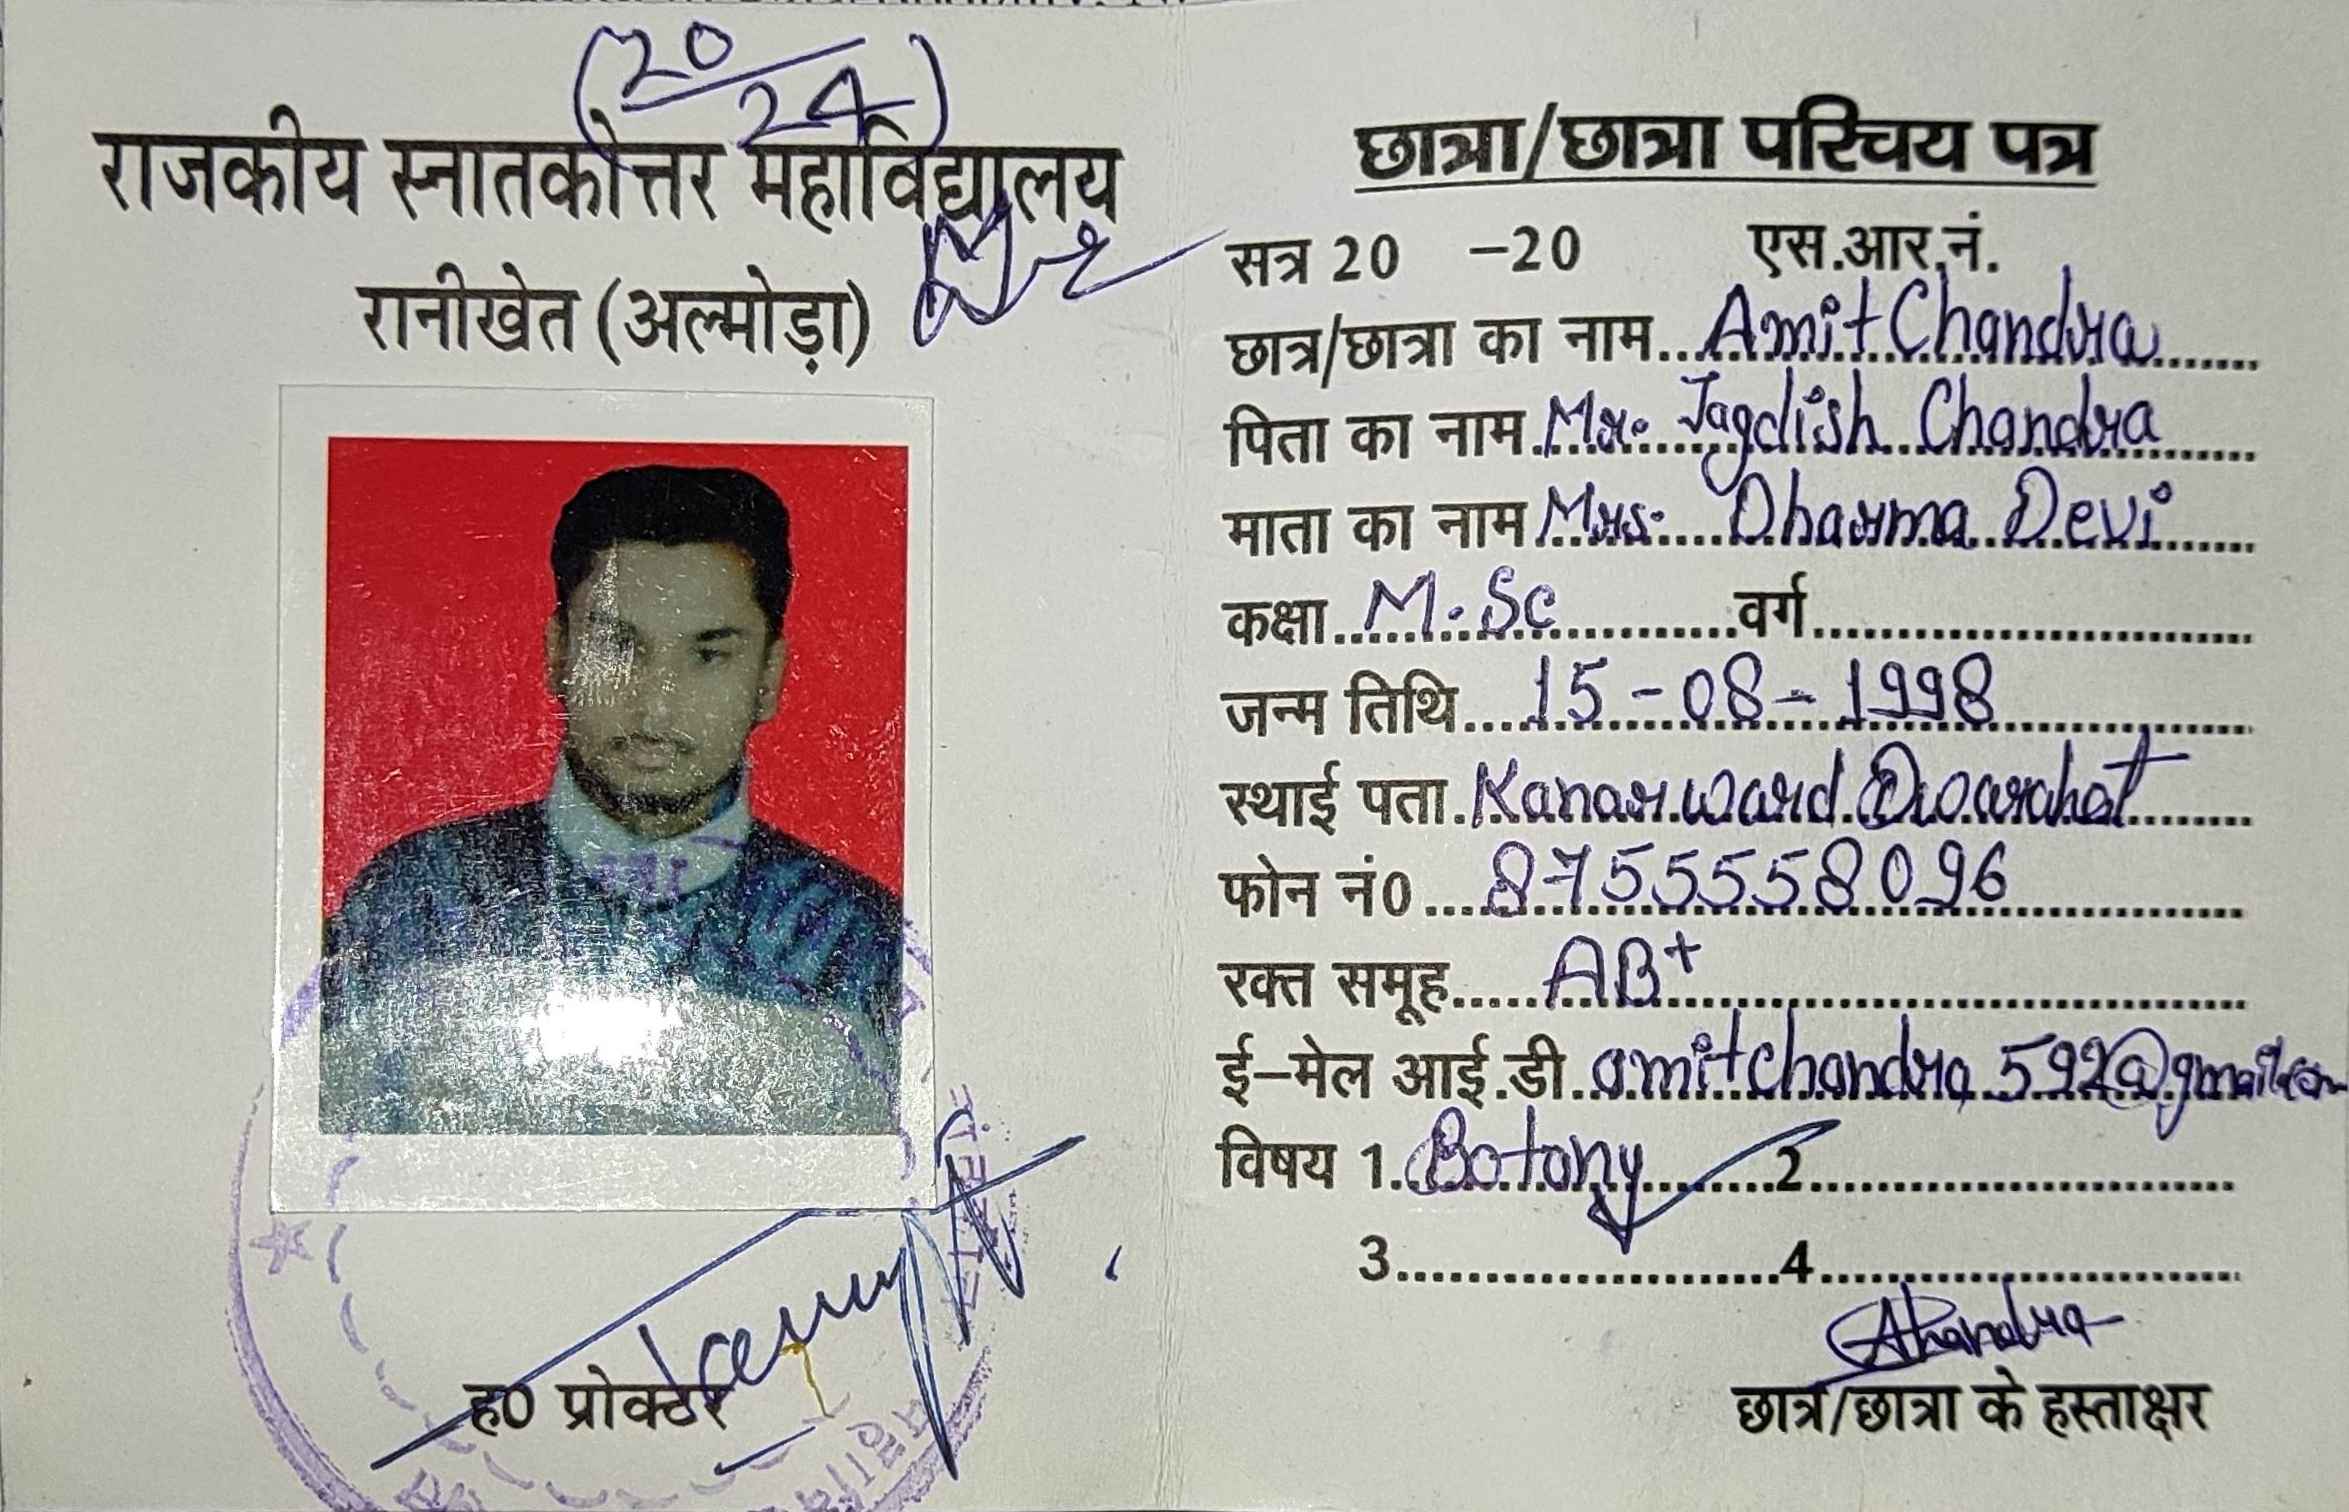 (20/24)
राजकीय स्नातकोत्तर महाविद्यालय
रानीखेत (अल्मोड़ा)
ह0 प्रोक्टर
छात्रा/छात्रा परिचय पत्र
सत्र 20 -20 एस.आर.नं.
छात्र/छात्रा का नाम Amit Chandra
पिता का नाम Mr. Jagdish Chandra
माता का नाम Mrs. Dharma Devi
कक्षा M.Sc वर्ग
जन्म तिथि 15-08-1998
स्थाई पता Kanar ward Dwarahat
फोन नं0 8755558096
रक्त समूह AB+
ई-मेल आई.डी. amitchandra592@gmail.com
विषय 1. Botony 2
3 4
Achandra
छात्र/छात्रा के हस्ताक्षर